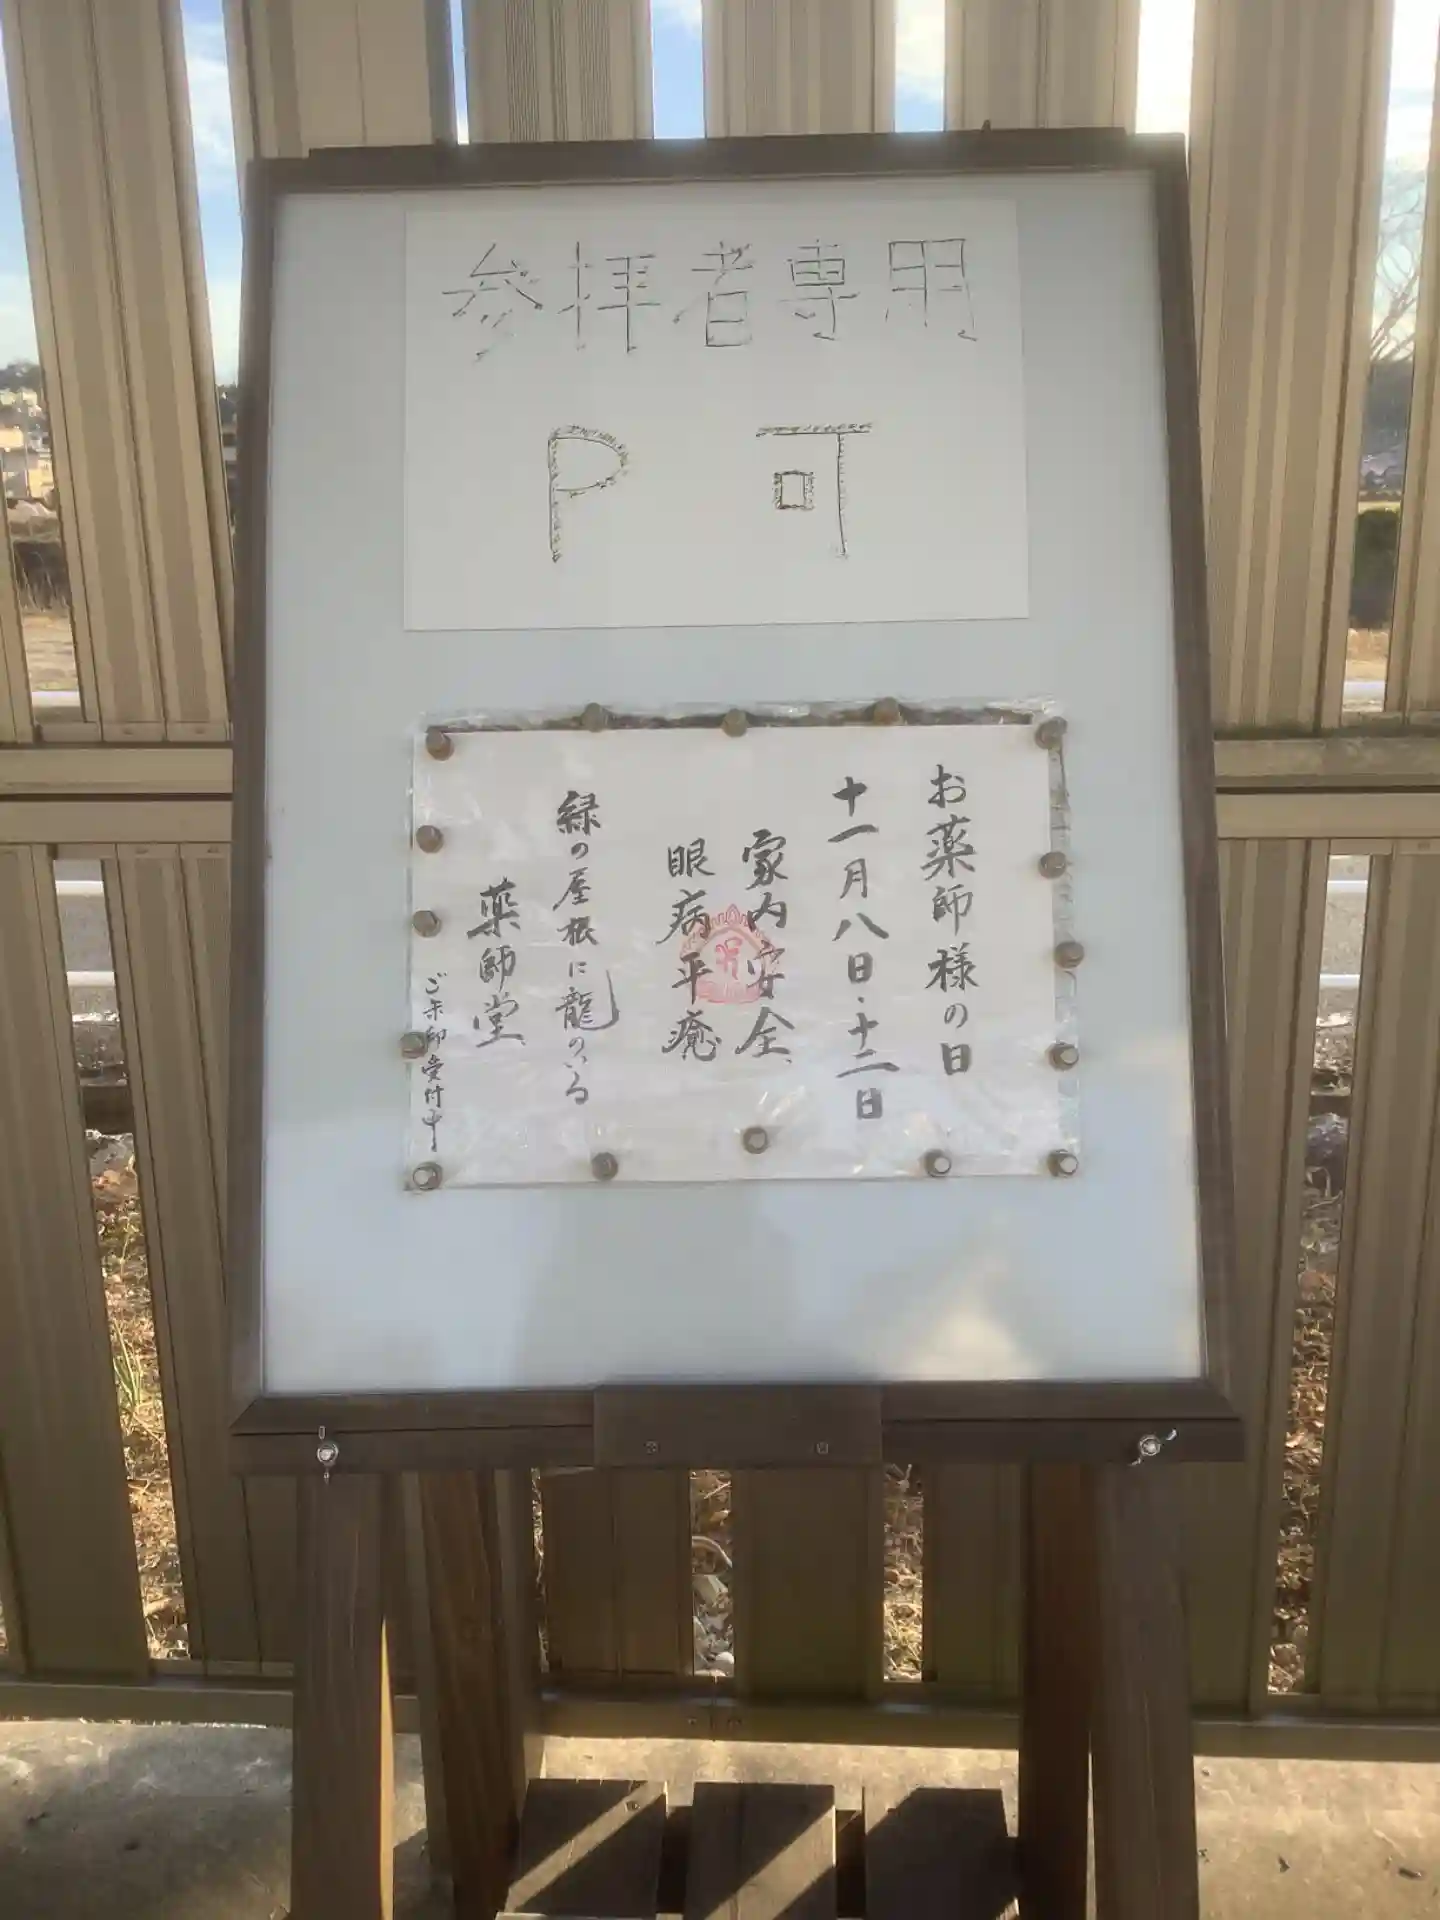 参拝者専用
P 可
お薬師様の日
十一月八日・十二日
家内安全、
眼病平癒
緑の屋根に龍のいる
薬師堂
ご朱印受付中